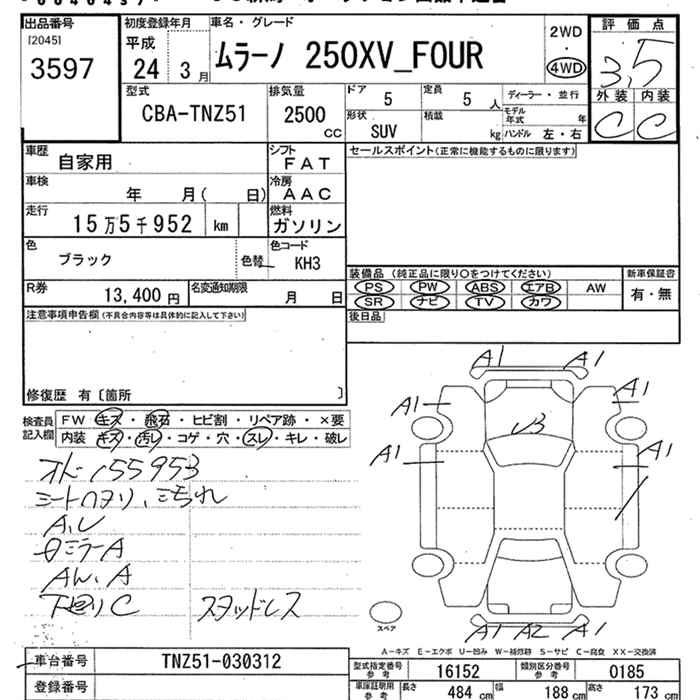 出品番号 初度登録年月 車名・グレード 2WD 評価点
[2045] 平成 ・
3597 24年 3月 ムラーノ 250XV_FOUR 4WD 3.5
型式 排気量 ドア 5 定員 5人 ディーラー・並行 外装 内装
CBA-TNZ51 2500cc 形状 SUV 積載 kg モデル年式 年 C C
ハンドル 左・右
車歴 自家用 シフト FAT セールスポイント(正常に機能するものに限ります)
車検 年 月( 日) 冷房 AAC
走行 15万5千952 km 燃料 ガソリン
色 ブラック 色替 色コード KH3
装備品 (純正品に限り○をつけてください) 新車保証書
R券 13,400円 名変通知期限 月 日 PS PW ABS エアB AW 有・無
SR ナビ TV カワ
注意事項申告欄(不具合内容等は具体的に記入して下さい) 後日品
修復歴 有〔箇所 〕
検査員記入欄 FW キズ・飛石・ヒビ割・リペア跡・×要
内装 キズ・汚レ・コゲ・穴・スレ・キレ・破レ
155953
A,U
ミラーA
A
下廻りC スタッドレス
A1 A1
A1 A1
A1 A1
A1 A2 A1
スペア
A-キズ E-エクボ U-凹み W-補修跡 S-サビ C-腐食 XX-交換済
車台番号 TNZ51-030312 型式指定番号 参考 16152 類別区分番号 参考 0185
登録番号 車庫証明用 参考 長さ 484cm 幅 188cm 高さ 173cm